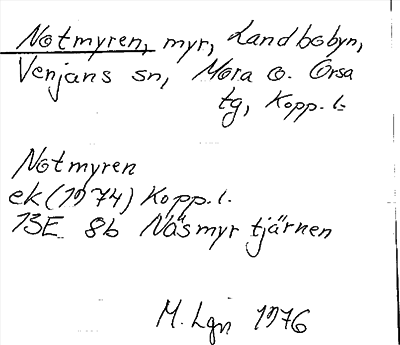 Notmyren, myr, Landbobyn,
Venjans sn, Mora o. Orsa
tg, Kopp. l.
Notmyren
ek (1974) Kopp. l.
13E 8b Näsmyrtjärnen
M. Lgn 1976